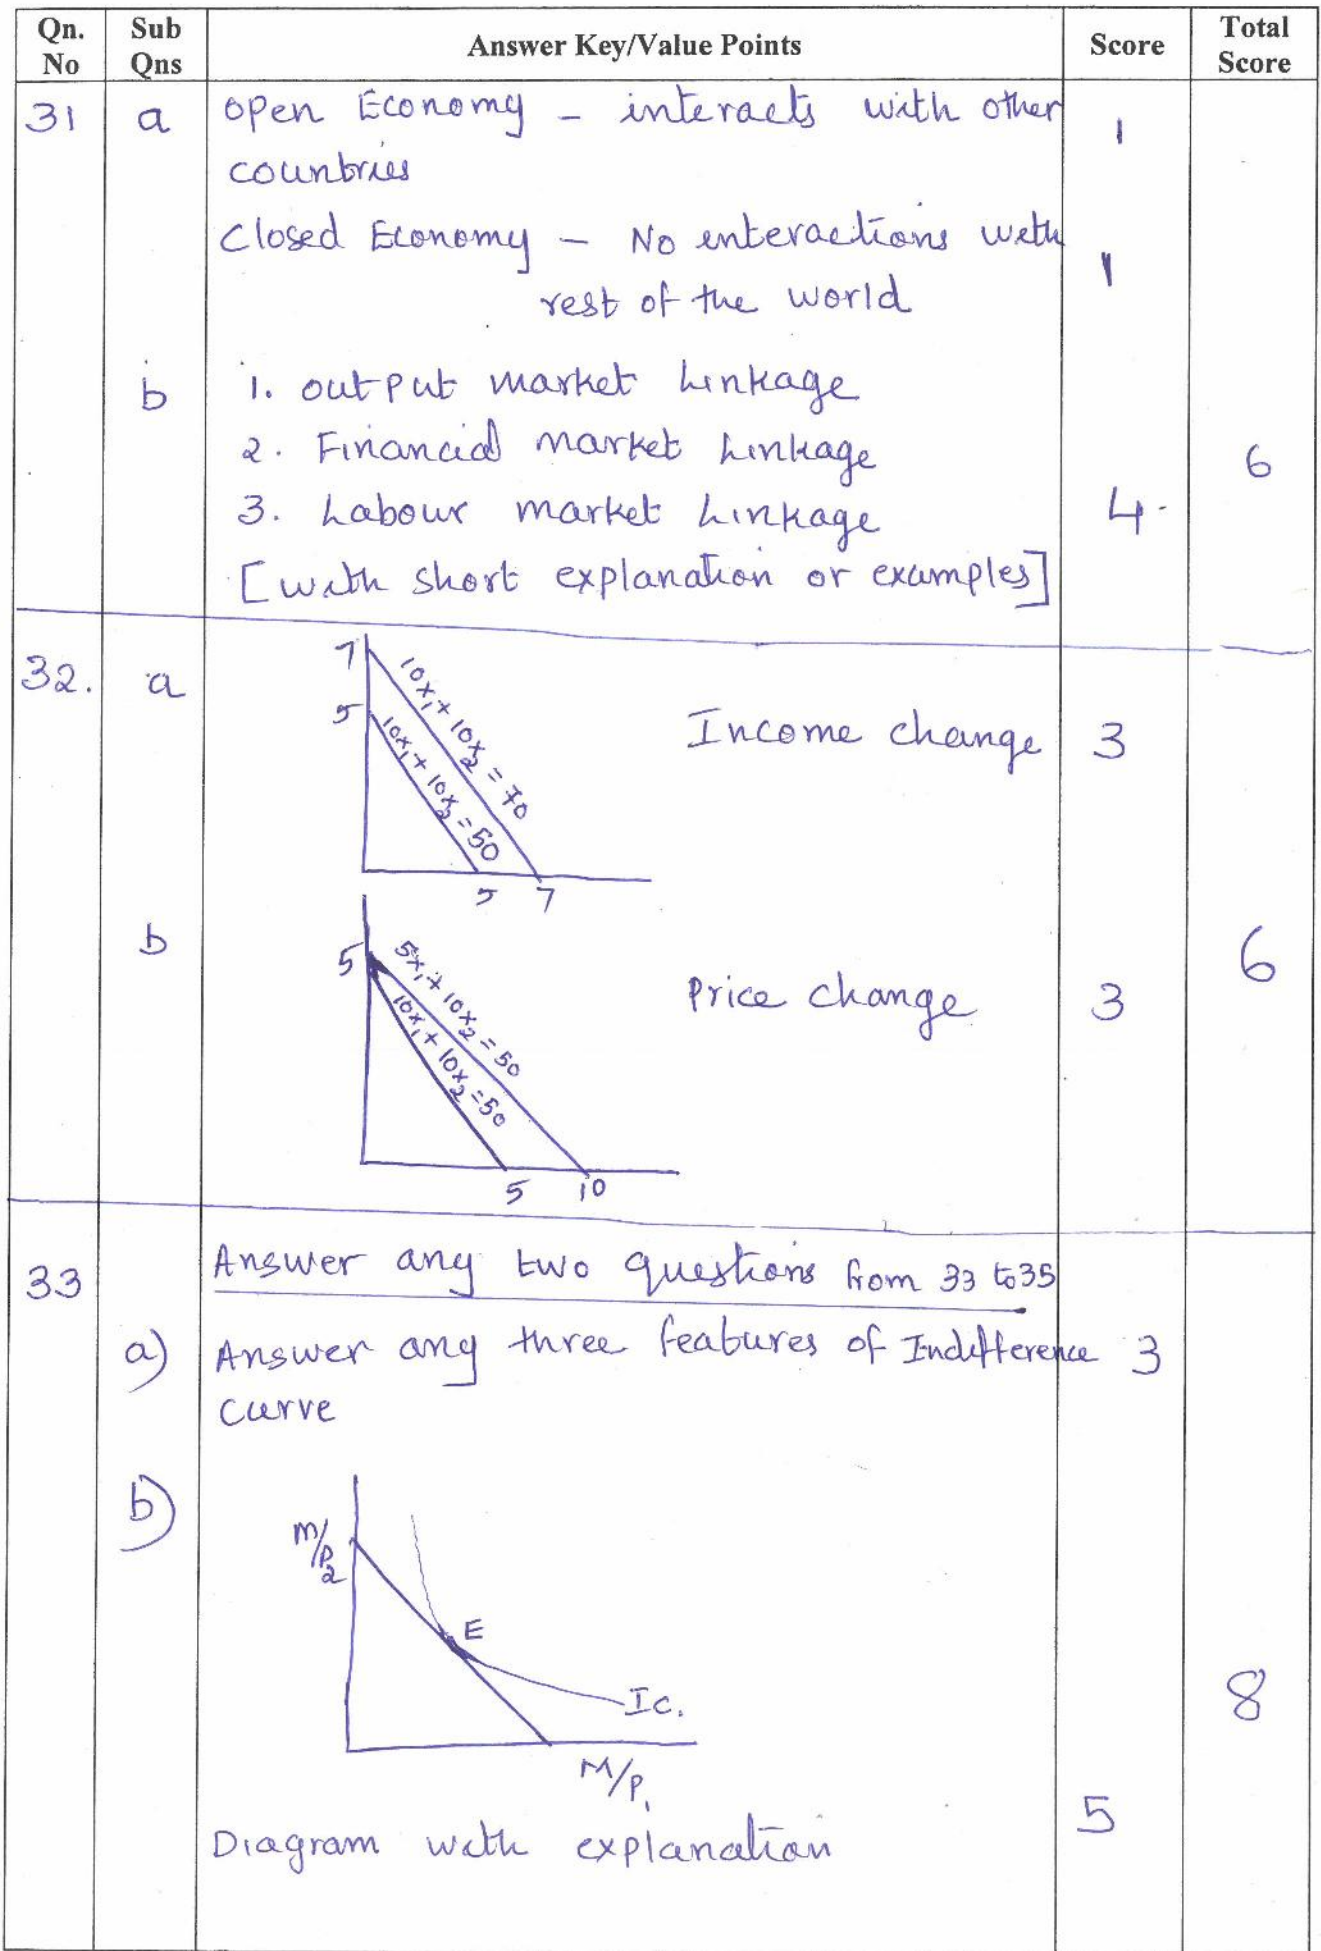 Qn. No Sub Qns Answer Key/Value Points Score Total Score
31 a open Economy - interacts with other 1
countries
Closed Economy - No interactions with 1
rest of the world
b 1. output market Linkage
2. Financial market Linkage 6
3. Labour market Linkage 4.
[with short explanation or examples]
32. a 7 10x₁ + 10x₂ = 70
5 10x₁ + 10x₂ = 50 Income change 3
5 7
b 5 5x₁ + 10x₂ = 50 6
10x₁ + 10x₂ = 50 Price change 3
5 10
33 Answer any two questions from 33 to 35
a) Answer any three features of Indifference 3
curve
b) M/P₂
E
Ic. 8
M/P₁
5
Diagram with explanation